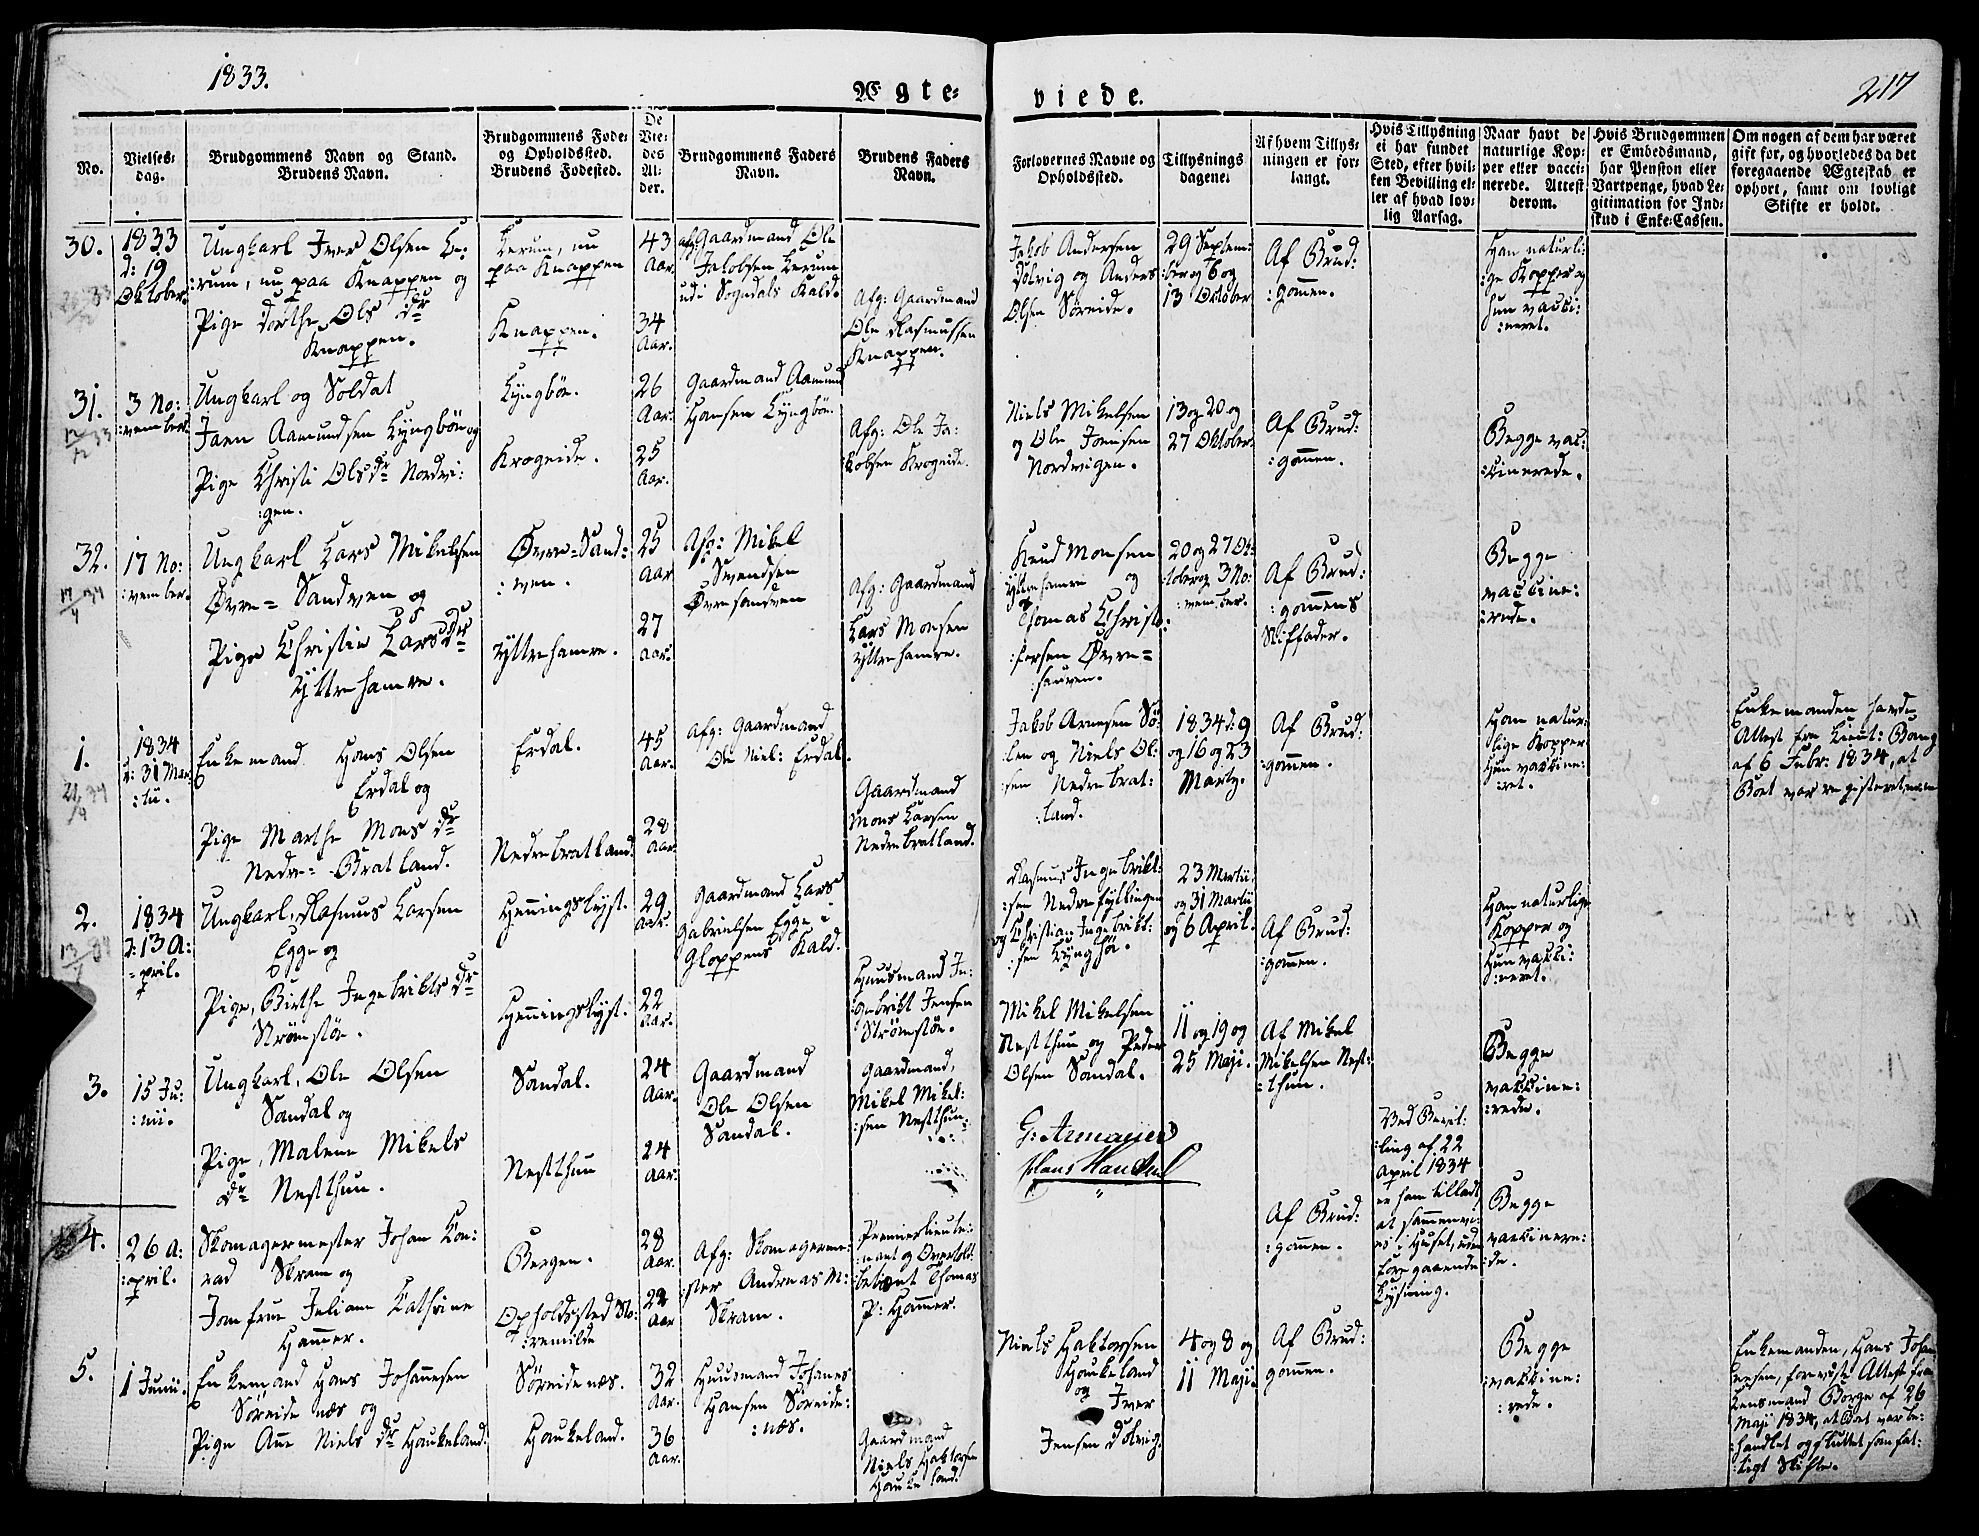 1833.
Ægte-
viede.
217
No.
Vielses-
dag.
Brudgommens Navn og Stand.
Brudens Navn.
Brudgommens Føde-
og Opholdssted.
Brudens Fødested.
De
Vie-
des
Al-
der.
Brudgommens Faders
Navn.
Brudens Faders
Navn.
Forlovernes Navne og
Opholdssted.
Tillysnings
dagene.
Af hvem Tillys-
ningen er for-
langt.
Hvis Tillysning
ei har fundet
Sted, efter hvil-
ken Bevilling el-
ler af hvad lov-
lig Aarsag.
Naar havt de
naturlige Kop-
per eller vacci-
nerede. Attest
derom.
Hvis Brudgommen
er Embedsmand,
har Pension eller
Vartpenge, hvad Le-
gitimation for Ind-
skud i Enke-Cassen.
Om nogen af dem har været
gift før, og hvorledes da det
foregaaende Ægteskab er
ophørt, samt om lovligt
Skifte er holdt.
30.
1833
d: 19
Oktober.
Ungkarl Iver Olsen Le:
:rum, nu paa Knappen og
Pige Dorthe Ols dr
Knappen.
Lerum, nu
paa Knappen
Knappen.
43
Aar.
34
Aar.
afg Gaardmand Ole
Jakobsen Lerum
udi Sogndals Kald.
Afg: Gaardmand
Ole Rasmussen
Knappen.
Jakob Andersen
Dolvig og Anders
Olsen Søreide.
29 Septem:
:ber og 6 og
13 Oktober
Af Brud:
:gommen.
Han naturli:
:ge Kopper og
hun vacci:
:neret.
31.
3 No:
:vember.
Ungkarl og Soldat
Joen Aamundsen Lyngbøn og
Pige Christi Olsdr Nordvi:
:gen.
Lyngbøn.
Krogeide.
26
Aar.
25
Aar.
Gaardmand Aamund
Hansen Lyngbøn.
Afg: Ole Ja:
:kobsen Krogeide.
Niels Mikelsen
og Ole Joensen
Nordvigen.
13 og 20 og
27 Oktober
Af Brud:
:gommen.
Begge vac:
:cinerede.
32.
17 No:
:vember.
Ungkarl Lars Mikelsen
Øvre= Sandven og
Pige Christie Lars dr
Yttrehamre.
Øvre=Sand:
:ven.
Yttrehamre.
25
Aar
27
Aar.
Afg: Mikel
Svendsen
Øvresandven
Afg: Gaardmand
Lars Monsen
Yttrehamre.
Knud Monsen
Yttrehamre og
Thomas Christo:
:fersen Øvre=
:sanven.
20 og 27 Ok:
:tober og 3 No:
:vember.
Af Brud:
:gommens
Stiffader.
Begge
vaccine:
:rede.
1.
1834
d: 31 Mar:
:tii.
Enkemand Hans Olsen
Erdal og
Pige Marthe Mons dr
Nedre= Bratland.
Erdal.
Nedrebratland.
45
Aar.
28
Aar.
Afg: Gaardmand
Ole Niel: Erdal.
Gaardmand
Mons Larsen
Nedrebratland.
Jakob Arnesen Sø:
:len og Niels Ol:
:sen Nedrebrat:
:land.
1834 d: 9
og 16 og 23
Marty.
Af Brud:
:gommen.
Han natur:
:lige Kopper
Hun vaccine:
:ret.
Enkemanden havde
Attest fra Lieut: Bang
af 6 Febr: 1834, at
Boet var registeret
2.
1834
d: 13 A:
:pril.
Ungkarl, Rasmus Larsen
Egge og
Pige, Birthe Ingebrikts dr
Strømstøe.
Henningslyst.
Henningslyst.
29
Aar.
22
Aar.
Gaardmand Lars
Gabrielsen Egge i
Gloppens Kald.
Huusmand In:
:gebrikt Jensen
Strømstøe.
Rasmus Ingebrikt:
:sen Nedrefyllingen
og Christian Ingebrikt:
:sen Lyngbø.
23 Martii
og 31 Martii
og 6 April.
Af Brud:
:gommen.
Han naturlige
Kopper og
Hun vacci:
:neret.
3.
15 Ju:
:nii.
Ungkarl, Ole Olsen
Sandal og
Pige, Malene Mikels
dr Nestthun.
Sandal.
Nestthun
24
Aar.
24
Aar.
Gaardmand
Ole Olsen
Sandal.
Gaardmand,
Mikel Mikel:
:sen Nestthun.
Mikel Mikelsen
Nestthun og Peder
Olsen Sandal.
11 og 19 og
25 Maji.
Af Mikel
Mikelsen Nest:
:thun.
Begge
vaccine:
:rede.
4.
26 A:
:pril.
Skomagermester Johan Con:
rad Skram og
Jomfrue Juliane Cathrine
Hammer.
Bergen.
Opholdssted St:
:remilde
28
Aar.
22
Aar
Afg: Skomagerme:
:ster Andreas M:
Skram.
Premierlieute:
:nant og Overtold
betient Thomas
P: Hammer.
G: Armauer
Hans Hansen
Af Brud:
:gommen.
Ved Bevil:
:ling af 22
April 1834
er ham tilladt
at sammenvi:
:es i Huset, uden
foregaaende
Lysning.
Begge
vaccinere:
:de.
5.
1 Junii.
Enkemand Hans Johannesen
Søreidenæs og
Pige Ane Niels dr Haukeland.
Søreidenæs.
Haukeland.
32
Aar.
36
Aar.
Huusmand Johanes
Hansen Søreide:
:næs.
Gaardmand
Niels Haktorsen
Haukeland.
Niels Haktorsen
Haukeland
og Iver
Jensen Dolvig.
4 og 8 og
11 Maji.
Af Brud:
gommen.
Begge
vaccine:
:rede.
Enkemanden, Hans Johan:
nesen, foreviste Attest fra
Lensmand Borge af 26
Maji 1834, at Boet var be:
:handlet og sluttet som fat:
:tigt Skifte.